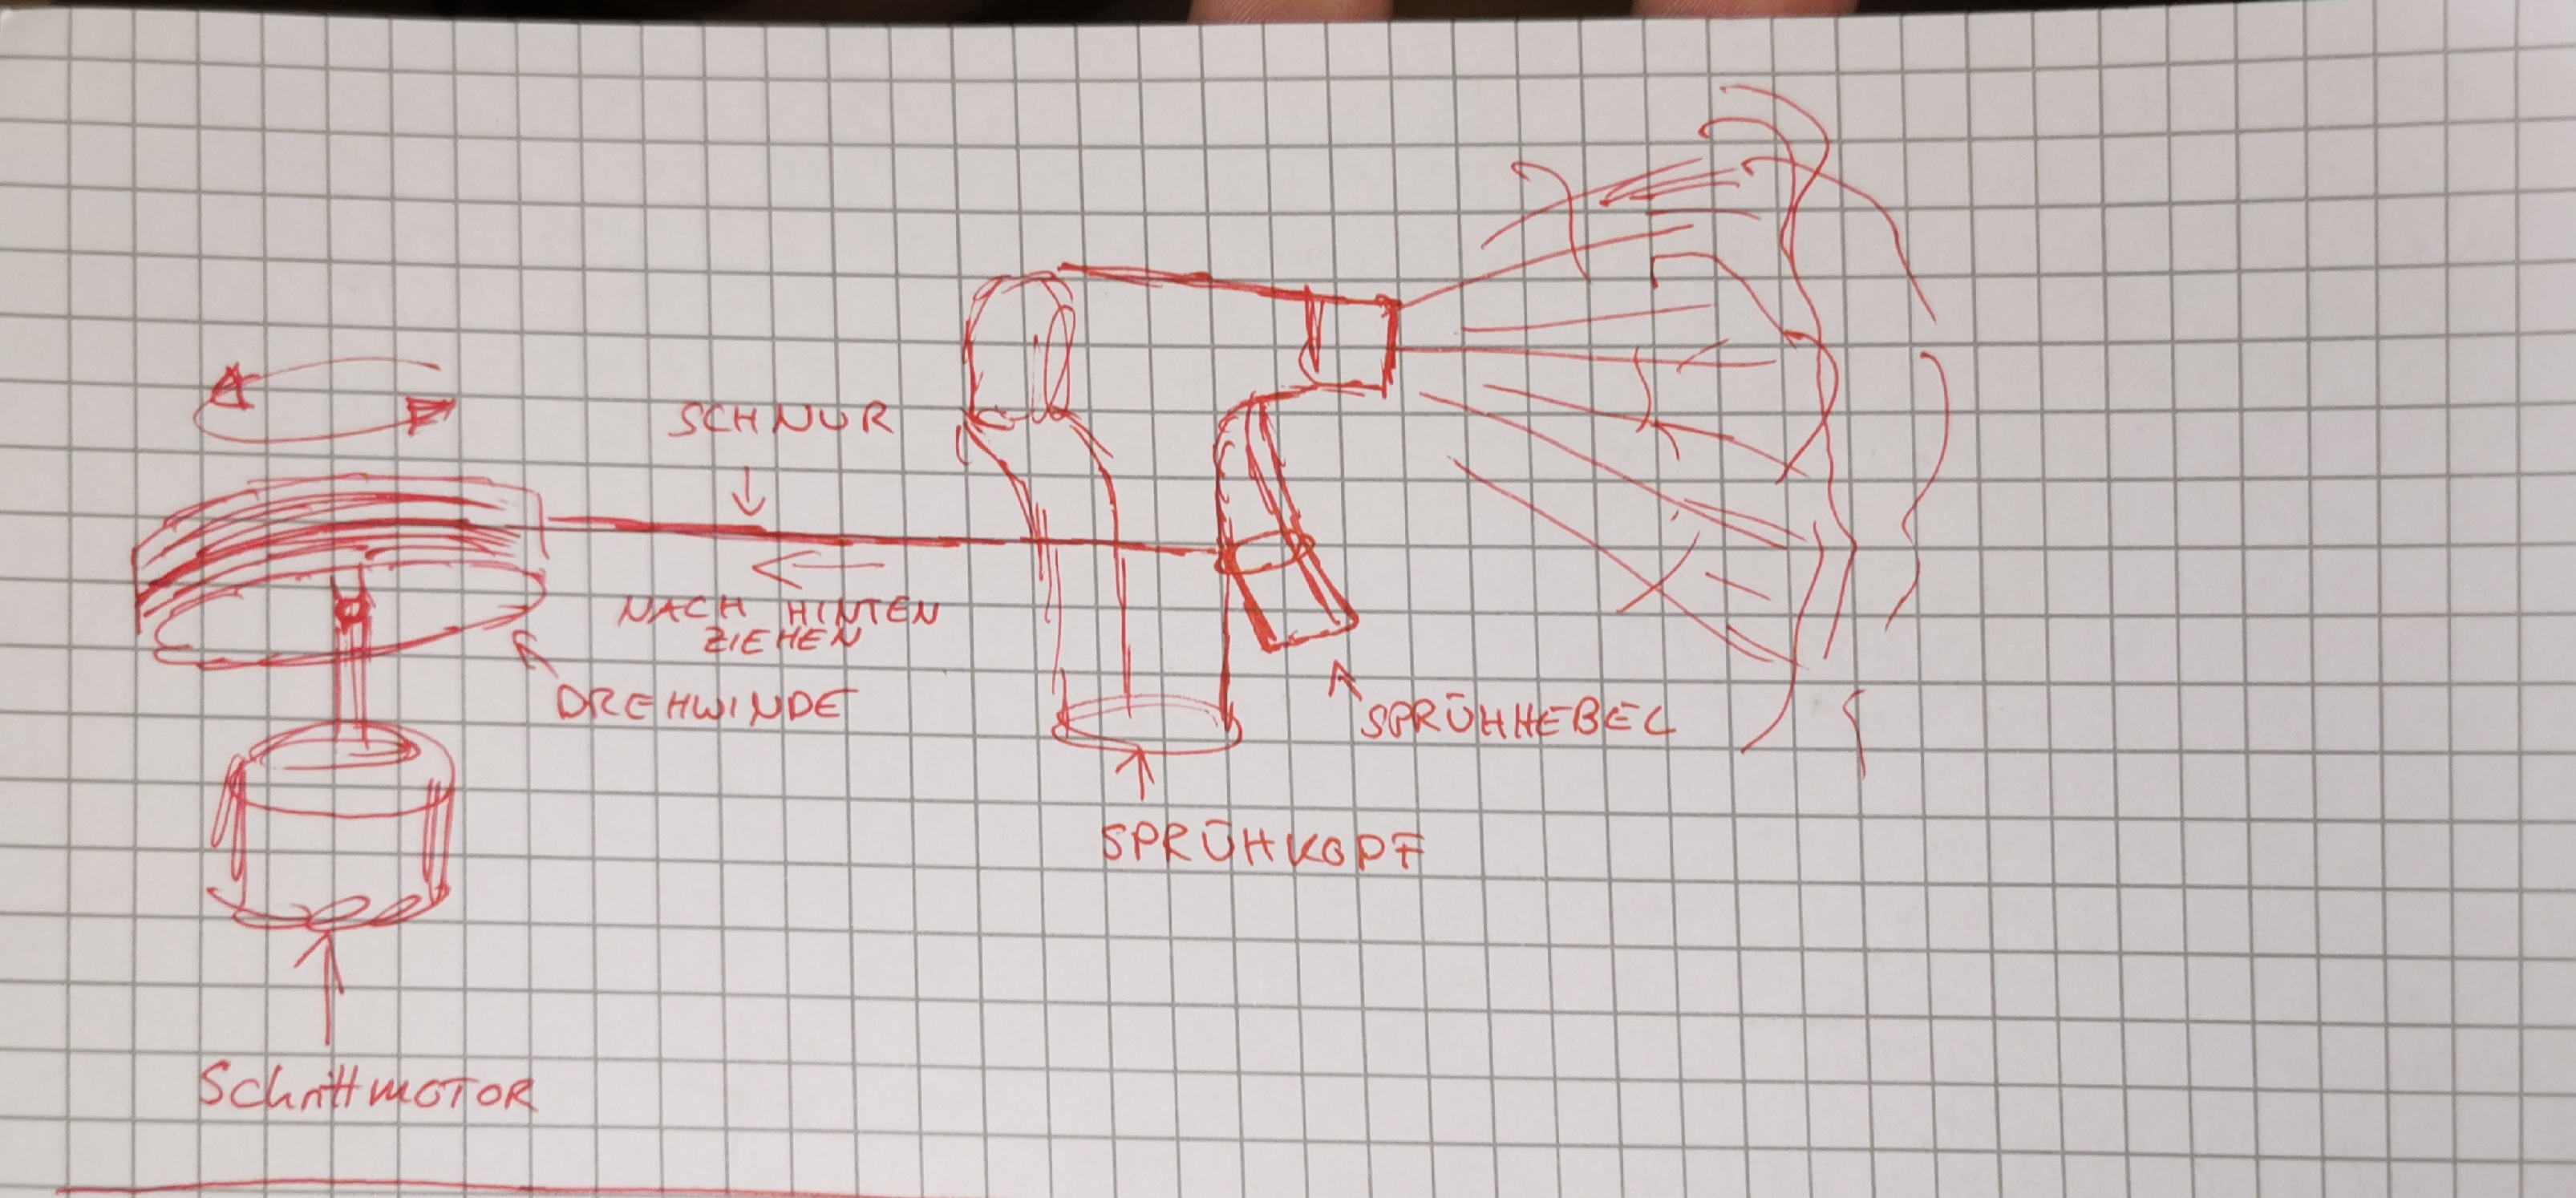 SCHNUR
NACH HINTEN
ZIEHEN
DREHWINDE
SPRÜHHEBEL
SPRÜHKOPF
SchrittMOTOR